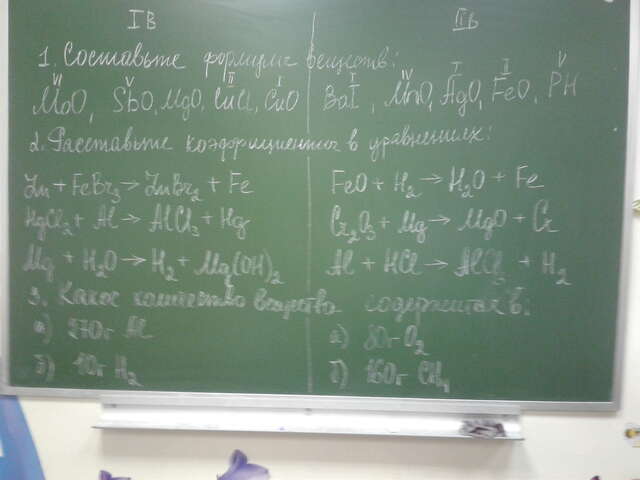 I В
II В
1. Составьте формулы веществ:
VI V II I
MoO, SbO, MgO, CuCl, CuO
I IV I II V
BaI, MnO, AgO, FeO, PH
2. Расставьте коэффициенты в уравнениях:
Zn + FeBr3 → ZnBr2 + Fe
HgCl2 + Al → AlCl3 + Hg
Mg + H2O → H2 + Mg(OH)2
FeO + H2 → H2O + Fe
Cr2O3 + Mg → MgO + Cr
Al + HCl → AlCl3 + H2
3. Какое количество вещества содержится в:
а) 270г Al
б) 10г H2
а) 80г O2
б) 160г CH4